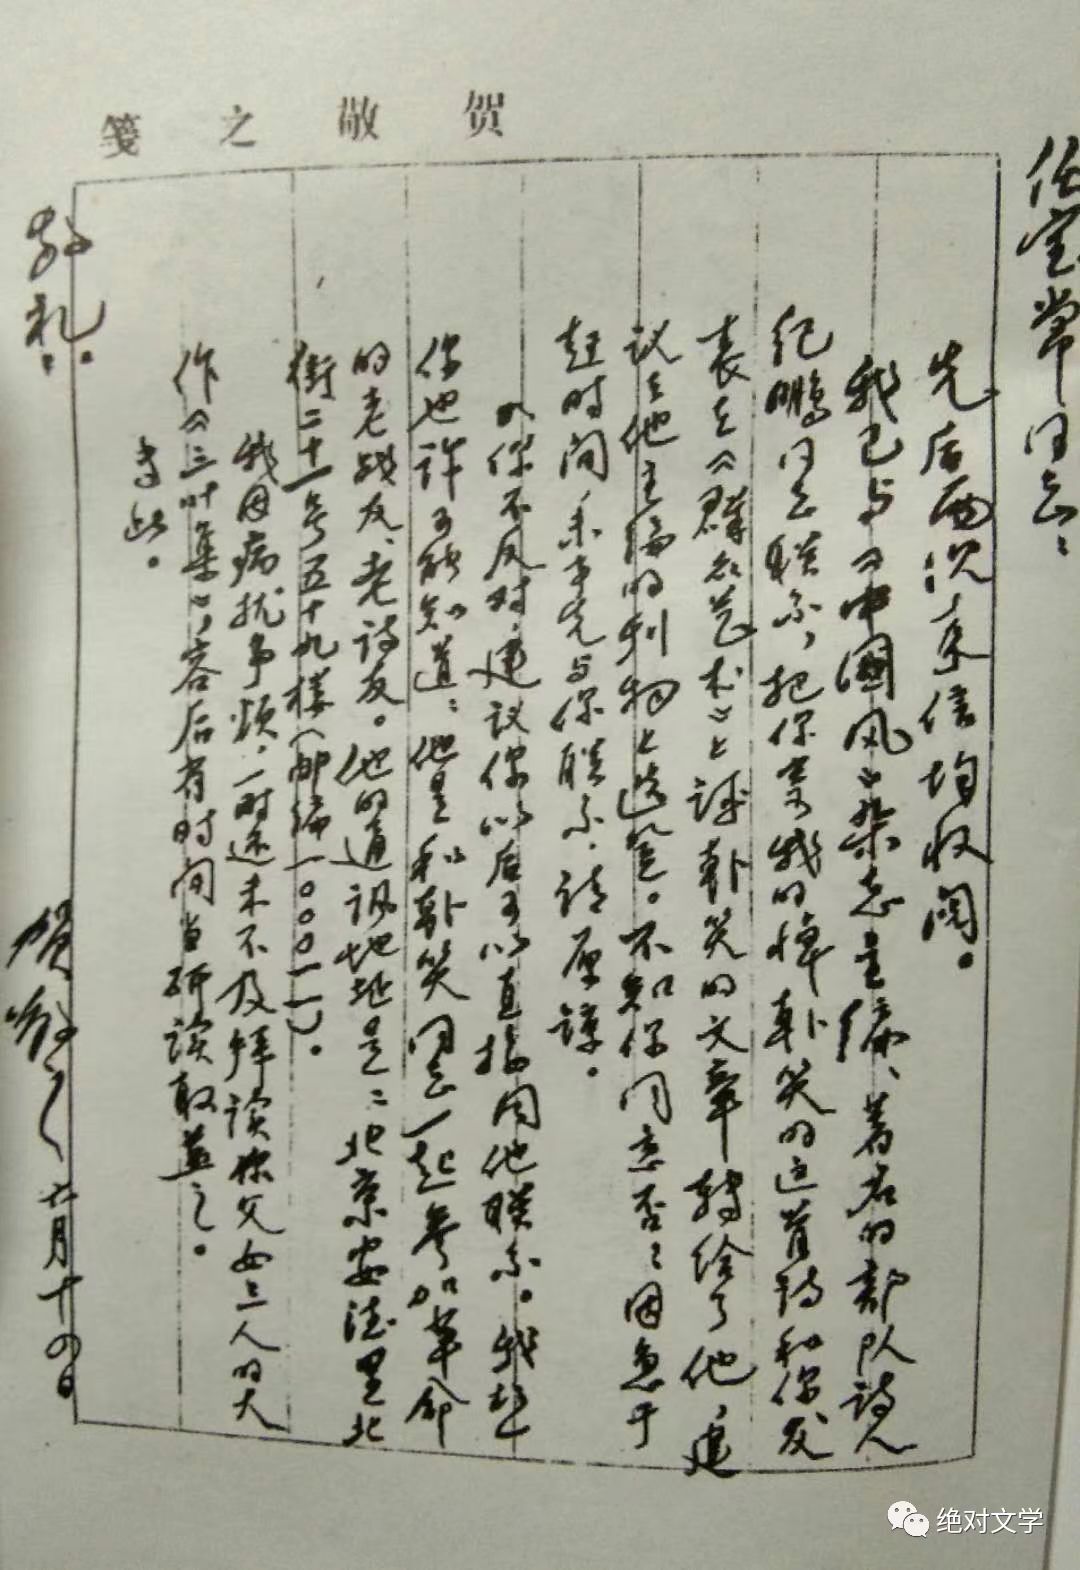 贺敬之笺
任宝常同志：
先后两次来信均收阅。
我已与《中國风》杂志主编、著名的部队诗人
纪鹏同志联系，把你寄我的悼韩笑的这首诗和你发
表在《群众艺术》上评韩笑的文章转给了他，建
议在他主编的刊物上选登。不知你同意否？因急于
赶时间未事先与你联系，请原谅。
如你不反对，建议你以后可以直接同他联系。我想
你也许可能知道：他是和韩笑同志一起参加革命
的老战友、老诗友。他的通讯地址是：北京安德里北
街二十一号五十九楼（邮编一〇〇〇一一）。
我因病扰事烦，一时还未不及拜读你父女三人的大
作《三叶集》，容后有时间当研读取益之。
专此。
敬礼！
贺敬之 六月十四日
绝对文学